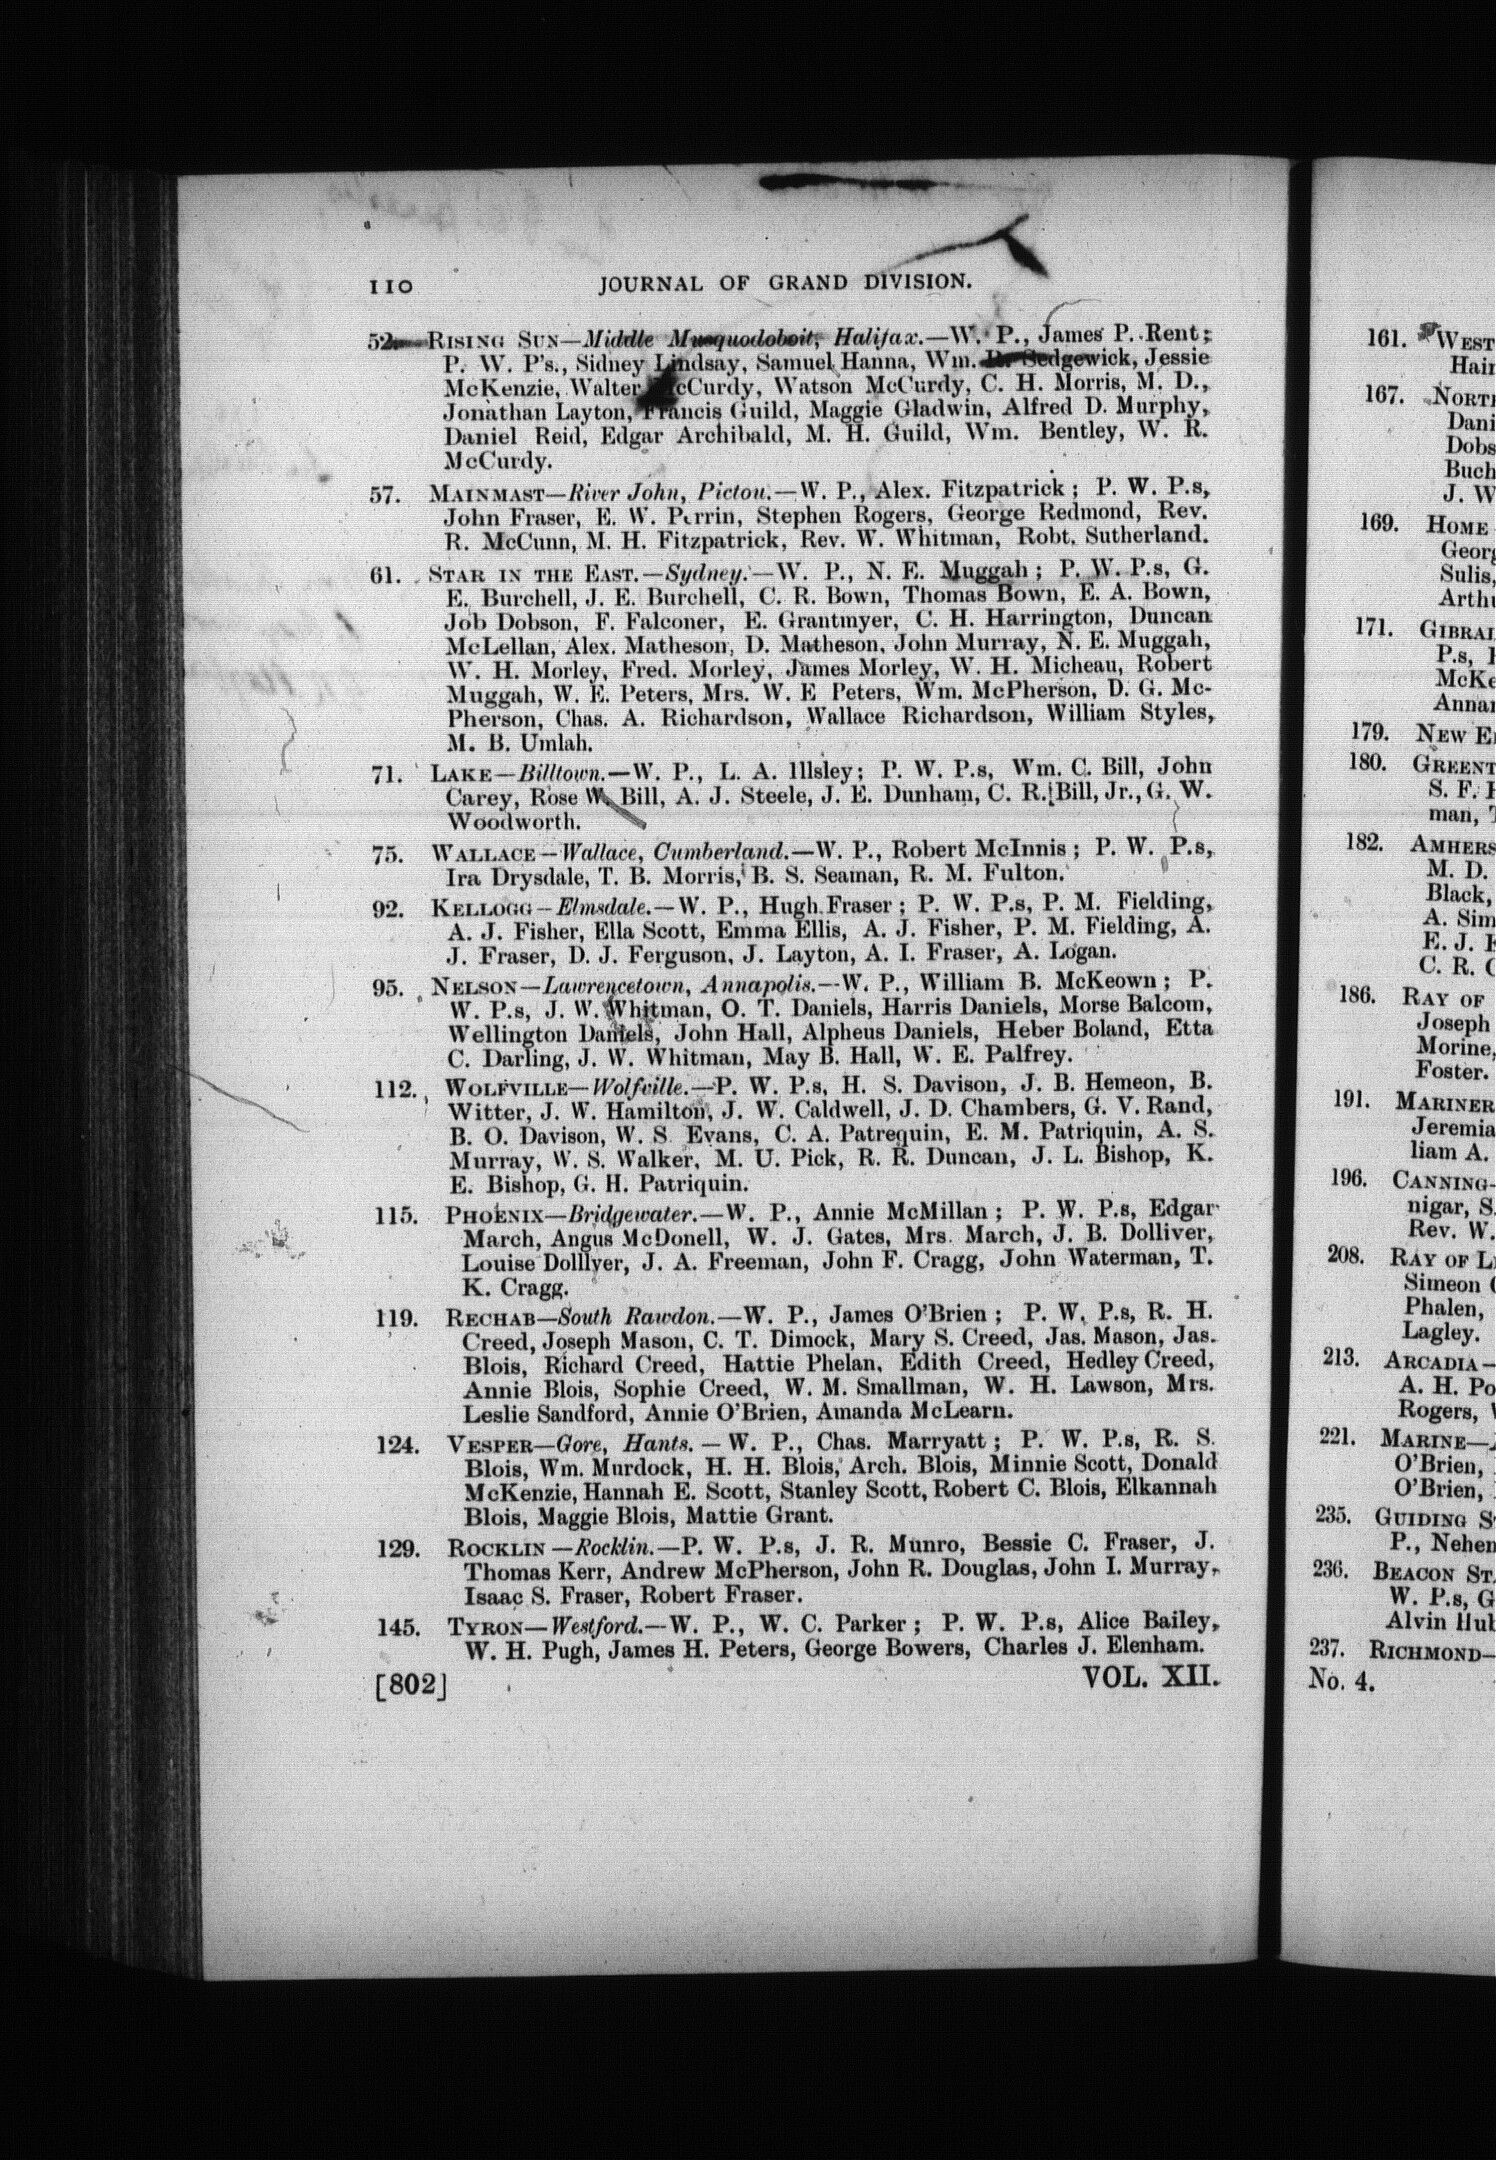 110 JOURNAL OF GRAND DIVISION.
52. RISING SUN—Middle Musquodoboit, Halifax.—W. P., James P. Rent;
P. W. P's., Sidney Lindsay, Samuel Hanna, Wm. Sedgewick, Jessie
McKenzie, Walter McCurdy, Watson McCurdy, C. H. Morris, M. D.,
Jonathan Layton, Francis Guild, Maggie Gladwin, Alfred D. Murphy,
Daniel Reid, Edgar Archibald, M. H. Guild, Wm. Bentley, W. R.
McCurdy.
57. MAINMAST—River John, Pictou.—W. P., Alex. Fitzpatrick; P. W. P.s,
John Fraser, E. W. Perrin, Stephen Rogers, George Redmond, Rev.
R. McCunn, M. H. Fitzpatrick, Rev. W. Whitman, Robt. Sutherland.
61. STAR IN THE EAST.—Sydney.—W. P., N. E. Muggah; P. W. P.s, G.
E. Burchell, J. E. Burchell, C. R. Bown, Thomas Bown, E. A. Bown,
Job Dobson, F. Falconer, E. Grantmyer, C. H. Harrington, Duncan
McLellan, Alex. Matheson, D. Matheson, John Murray, N. E. Muggah,
W. H. Morley, Fred. Morley, James Morley, W. H. Micheau, Robert
Muggah, W. E. Peters, Mrs. W. E Peters, Wm. McPherson, D. G. Mc-
Pherson, Chas. A. Richardson, Wallace Richardson, William Styles,
M. B. Umlah.
71. LAKE—Billtown.—W. P., L. A. Illsley; P. W. P.s, Wm. C. Bill, John
Carey, Rose W. Bill, A. J. Steele, J. E. Dunham, C. R. Bill, Jr., G. W.
Woodworth.
75. WALLACE—Wallace, Cumberland.—W. P., Robert McInnis; P. W. P.s,
Ira Drysdale, T. B. Morris, B. S. Seaman, R. M. Fulton.
92. KELLOGG—Elmsdale.—W. P., Hugh Fraser; P. W. P.s, P. M. Fielding,
A. J. Fisher, Ella Scott, Emma Ellis, A. J. Fisher, P. M. Fielding, A.
J. Fraser, D. J. Ferguson, J. Layton, A. I. Fraser, A. Logan.
95. NELSON—Lawrencetown, Annapolis.—W. P., William B. McKeown; P.
W. P.s, J. W. Whitman, O. T. Daniels, Harris Daniels, Morse Balcom,
Wellington Daniels, John Hall, Alpheus Daniels, Heber Boland, Etta
C. Darling, J. W. Whitman, May B. Hall, W. E. Palfrey.
112. WOLFVILLE—Wolfville.—P. W. P.s, H. S. Davison, J. B. Hemeon, B.
Witter, J. W. Hamilton, J. W. Caldwell, J. D. Chambers, G. V. Rand,
B. O. Davison, W. S Evans, C. A. Patrequin, E. M. Patriquin, A. S.
Murray, W. S. Walker, M. U. Pick, R. R. Duncan, J. L. Bishop, K.
E. Bishop, G. H. Patriquin.
115. PHOENIX—Bridgewater.—W. P., Annie McMillan; P. W. P.s, Edgar
March, Angus McDonell, W. J. Gates, Mrs. March, J. B. Dolliver,
Louise Dolllyer, J. A. Freeman, John F. Cragg, John Waterman, T.
K. Cragg.
119. RECHAB—South Rawdon.—W. P., James O'Brien; P. W. P.s, R. H.
Creed, Joseph Mason, C. T. Dimock, Mary S. Creed, Jas. Mason, Jas.
Blois, Richard Creed, Hattie Phelan, Edith Creed, Hedley Creed,
Annie Blois, Sophie Creed, W. M. Smallman, W. H. Lawson, Mrs.
Leslie Sandford, Annie O'Brien, Amanda McLearn.
124. VESPER—Gore, Hants.—W. P., Chas. Marryatt; P. W. P.s, R. S.
Blois, Wm. Murdock, H. H. Blois, Arch. Blois, Minnie Scott, Donald
McKenzie, Hannah E. Scott, Stanley Scott, Robert C. Blois, Elkannah
Blois, Maggie Blois, Mattie Grant.
129. ROCKLIN—Rocklin.—P. W. P.s, J. R. Munro, Bessie C. Fraser, J.
Thomas Kerr, Andrew McPherson, John R. Douglas, John I. Murray,
Isaac S. Fraser, Robert Fraser.
145. TYRON—Westford.—W. P., W. C. Parker; P. W. P.s, Alice Bailey,
W. H. Pugh, James H. Peters, George Bowers, Charles J. Elenham.
[802] VOL. XII.
161. WEST
Hair
167. NORTH
Dani
Dobs
Buch
J. W
169. HOME
Georg
Sulis,
Arthu
171. GIBRAL
P.s,
McKe
Annan
179. NEW E
180. GREENT
S. F.
man,
182. AMHERS
M. D.
Black,
A. Sim
E. J.
C. R.
186. RAY OF
Joseph
Morine,
Foster.
191. MARINER
Jeremia
liam A.
196. CANNING-
nigar, S.
Rev. W.
208. RAY OF L
Simeon
Phalen,
Lagley.
213. ARCADIA—
A. H. Po
Rogers,
221. MARINE—
O'Brien,
O'Brien,
235. GUIDING S
P., Nehem
236. BEACON ST
W. P.s, G
Alvin Hub
237. RICHMOND—
No. 4.